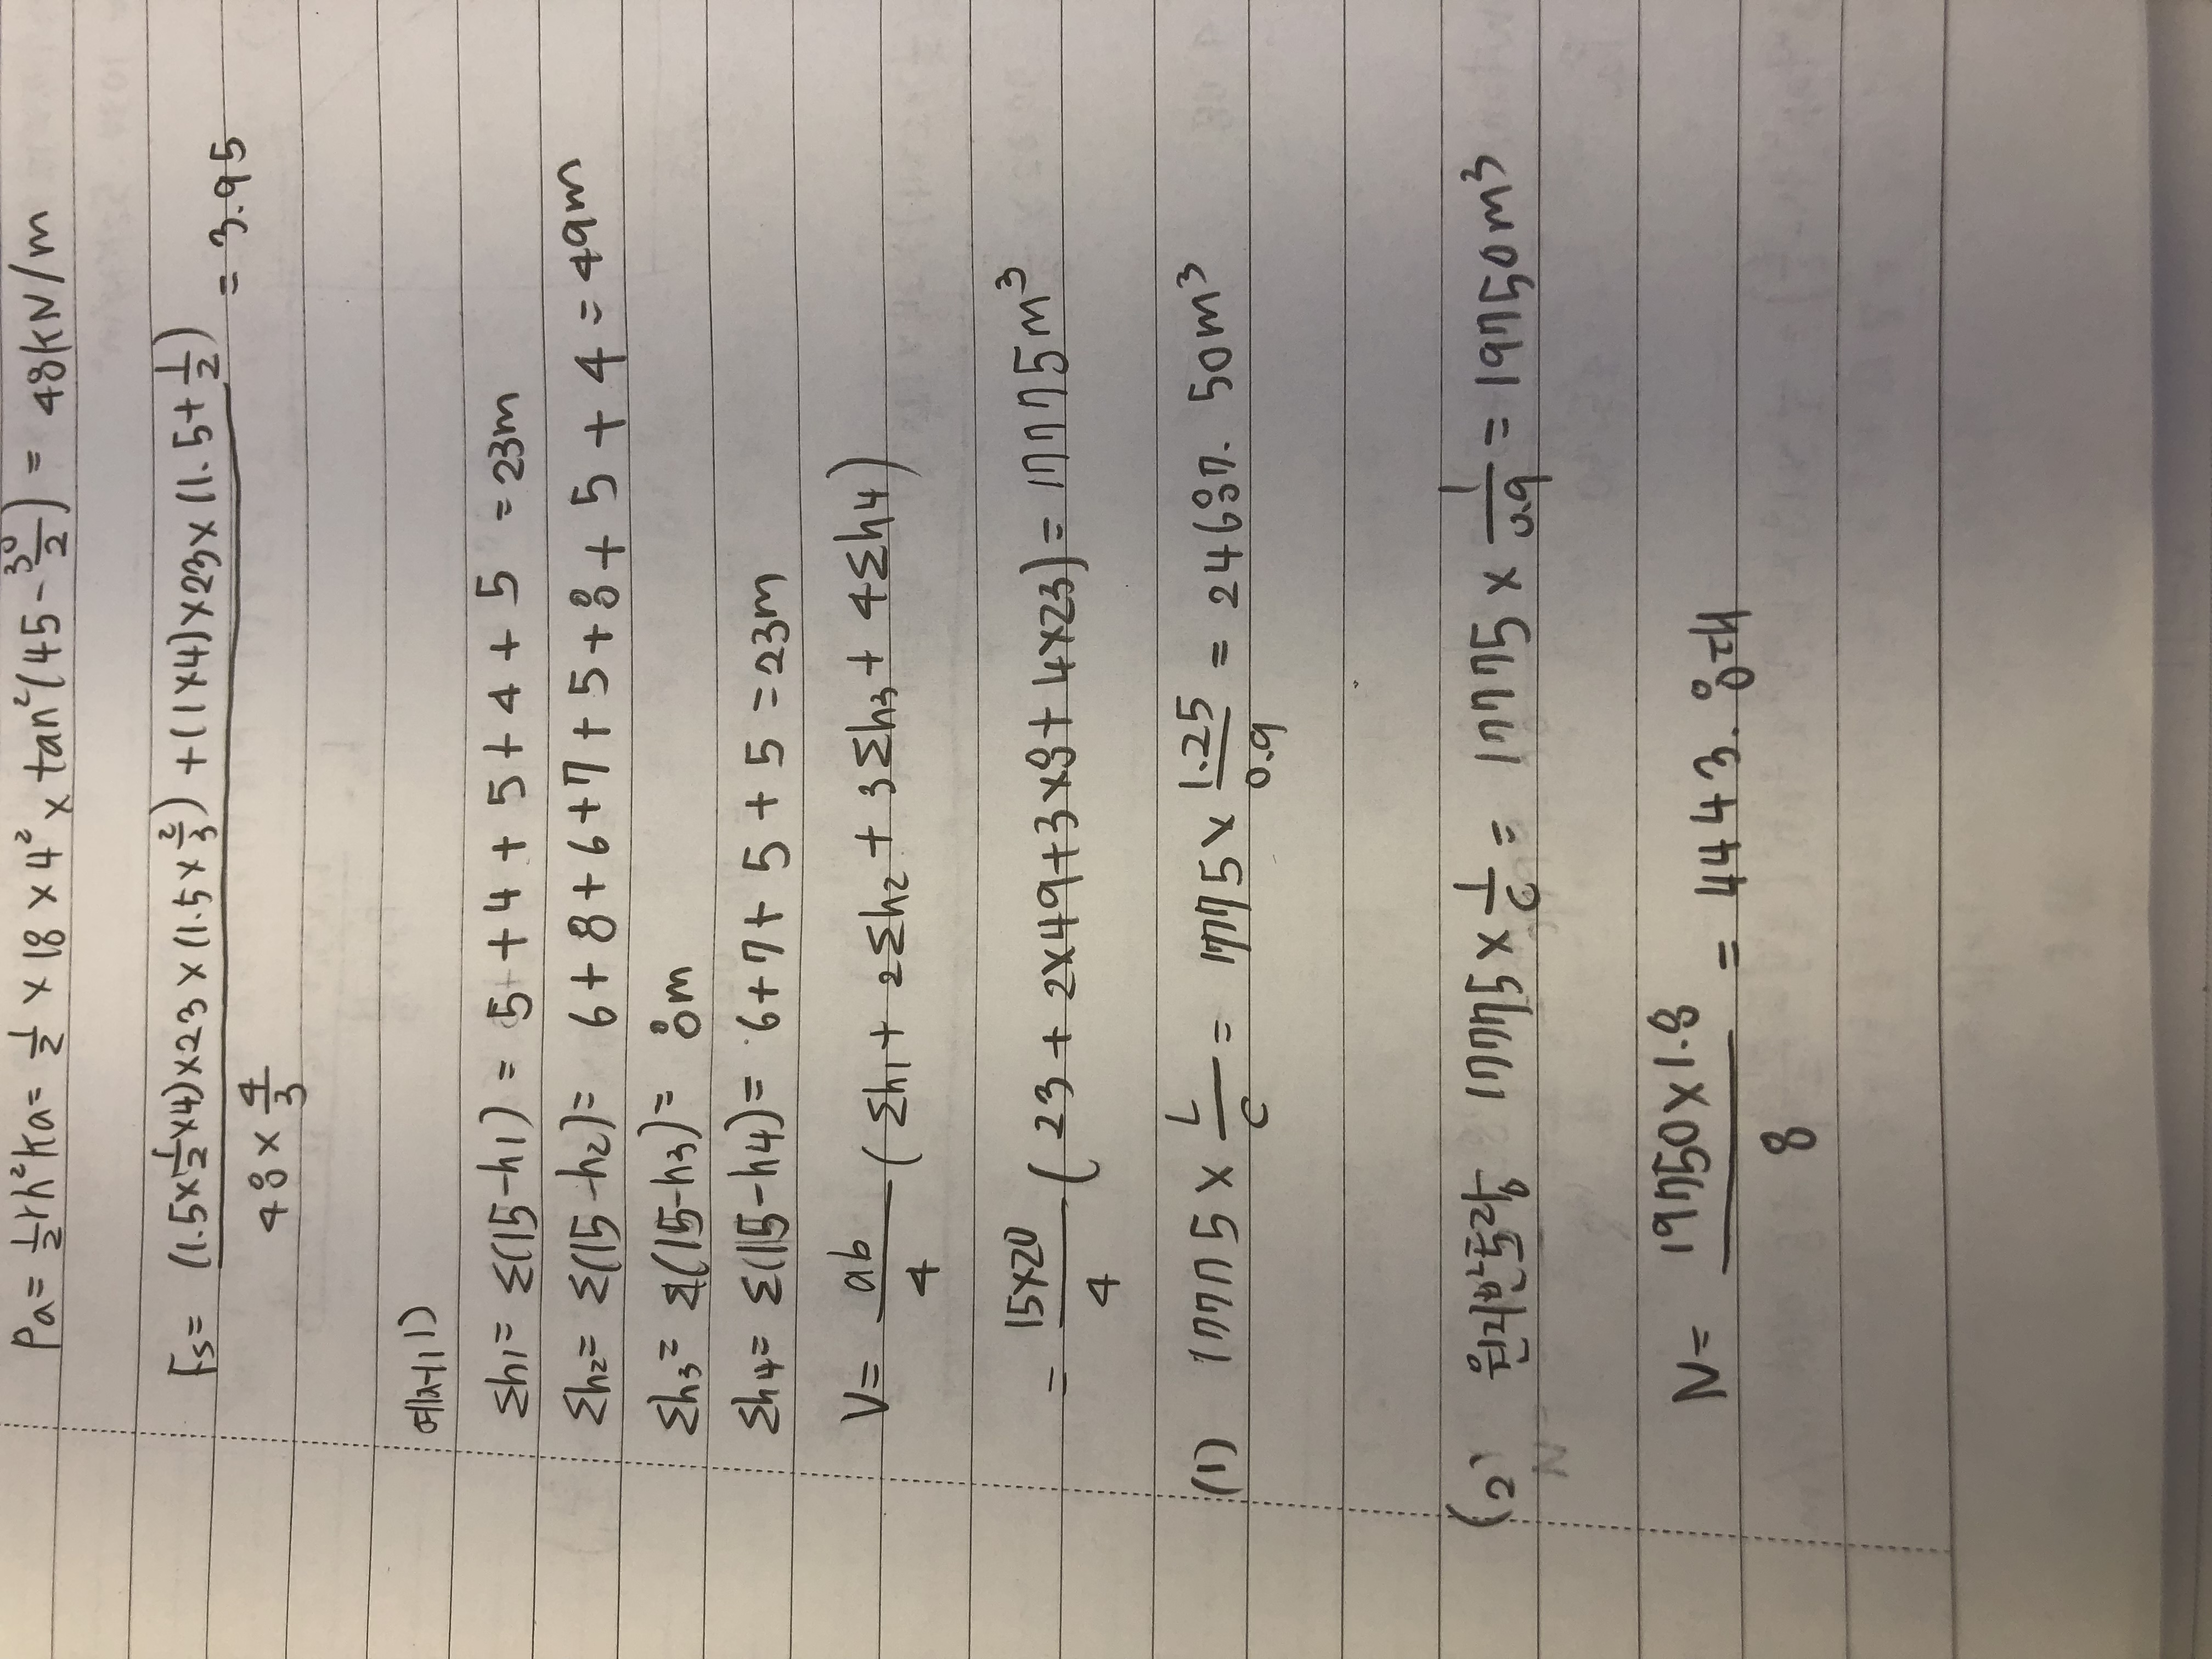 Pa = 1/2 r h² Ka = 1/2 × 18 × 4² × tan²(45 - 30/2) = 48kN/m
Fs = (1.5×1/2×4)×23×(1.5×2/3)+(1×4)×23×(1.5+1/2) / 48×4/3 = 3.95
예제1)
Σh1= Σ(15-h1) = 5+4+5+5+4+5 = 23m
Σh2= Σ(15-h2)= 6+8+6+7+5+8+5+4=49m
Σh3= Σ(15-h3)= 8m
Σh4= Σ(15-h4)= 6+7+5+5=23m
V= ab/4 (Σh1+2Σh2+3Σh3+4Σh4)
= 15×20/4 (23+2×49+3×8+4×23)=17775m³
(1) 17775× L/C = 17775× 1.25/0.9 = 24687.50m³
(2) 원지반토량 17775× 1/C = 17775× 1/0.9 = 19750m³
N= 19750×1.8 / 8 = 4443.8대